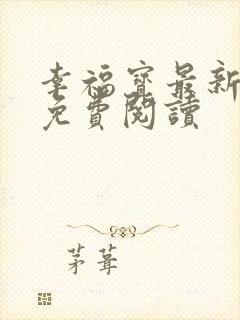 幸福寶最新
免費閱讀
茅葺